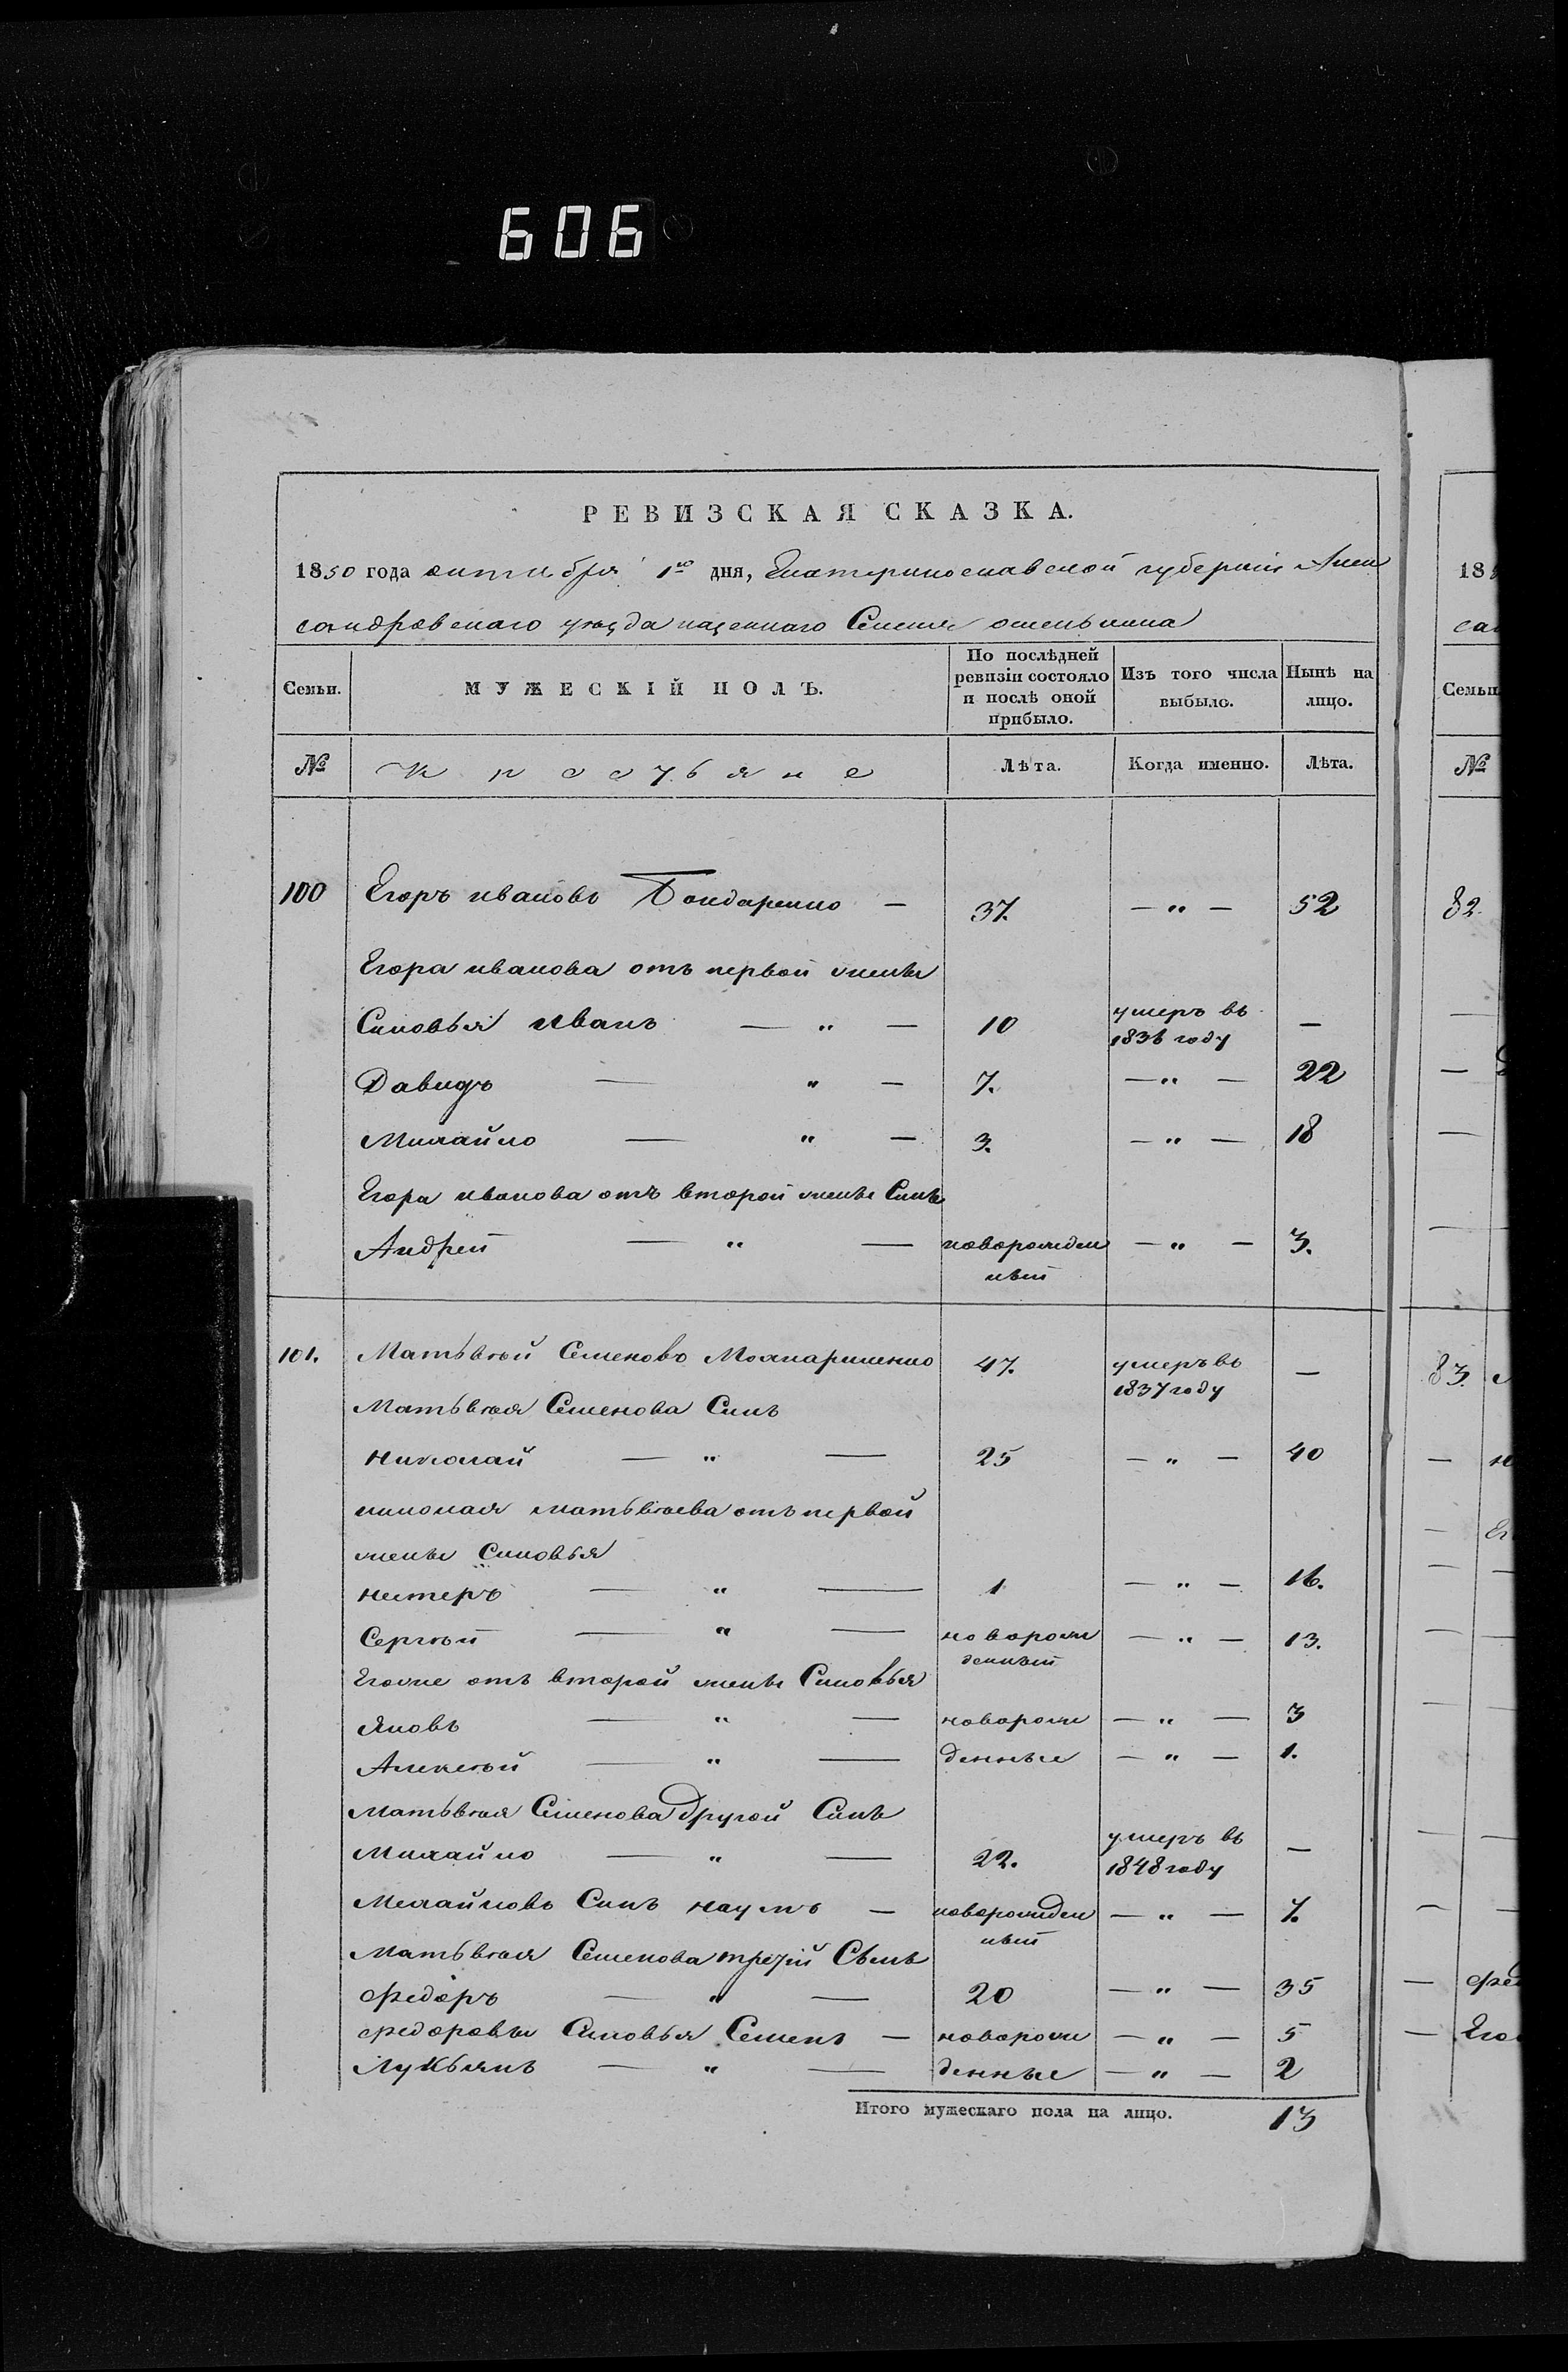 606
РЕВИЗСКАЯ СКАЗКА.
1850 года октября 1го дня, Екатеринославской губернии Алек
сандровскаго уѣзда казеннаго Селения
Семьи.
МУЖЕСКІЙ ПОЛЪ.
По послѣдней ревизіи состояло и послѣ оной прибыло.
Изъ того числа выбыло.
Нынѣ на лицо.
№ Крестьяне Лѣта. Когда именно. Лѣта.
100 Егоръ ивановъ Бондаренко — 37. — „ — 52
Егора иванова отъ первой жены
Синовья иванъ — „ — 10 умеръ въ 1836 году —
Давидъ — „ — 7. — „ — 22
Михайло — „ — 3. — „ — 18
Егора иванова отъ второй жены Синъ
Андрей — „ — новорожден ный — „ — 3.
101. Матьвѣй Семеновъ 47. умеръ въ 1837 году —
Матьвѣя Семенова Синъ
николай — „ — 25 — „ — 40
николая матьвѣева отъ первой
жены Синовья
нестеръ — „ — 1 — „ — 16.
Сергѣй — „ — новорож денный — „ — 13.
Егоже отъ второй жены Синовья
Яковъ — „ — новорож — „ — 3
Алексѣй — „ — денные — „ — 1.
Матьвѣя Семенова другой Синъ
Михайло — „ — 22. умеръ въ 1848 году —
Михайловъ Синъ наумъ — новорожден ный — „ — 7.
Матьвѣя Семенова третій Сынъ
федоръ — „ — 20 — „ — 35
федоровы Синовья Семенъ — новорож — „ — 5
Лукьянъ — „ — денные — „ — 2
Итого мужескаго пола на лицо. 13
18
Семьи
№
82.
83.